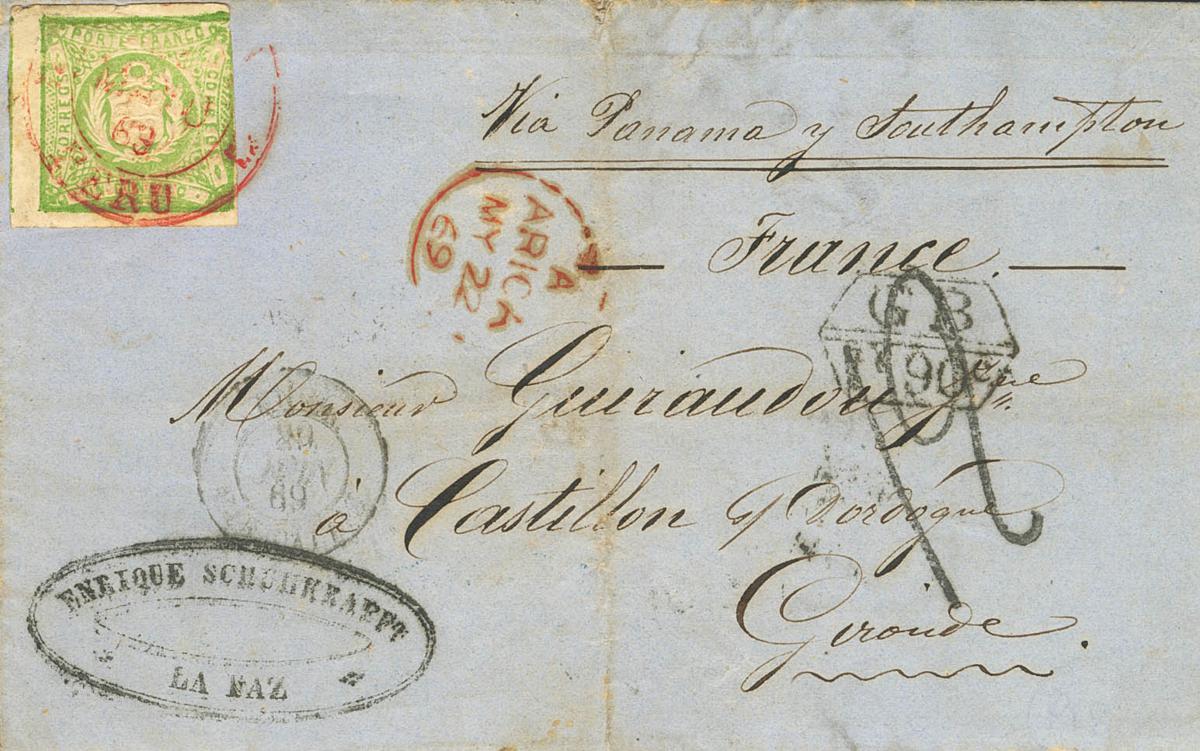 PORTE FRANCO
CORREOS
PERU
Via Panama y Southampton
ARICA
MY 22
69
A
France.
G B
1F 90c
Monsieur Guiraudou Jque
à Castillon s/ Dordogne
Gironde.
69
ENRIQUE SCHUHKRAFFT
LA PAZ